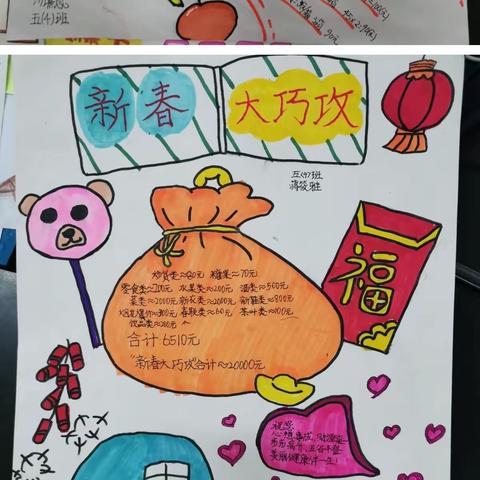 五(4)班
90元
新春
大巧攻
五(4)班
蒋筱雅
炒货类≈80元 糖果≈70元
零食类≈200元 水果类≈200元 酒类≈500元
菜类≈2000元 新衣≈2000元 新鞋类≈800元
烟花爆竹≈300元 春联类≈60元 茶叶类≈100元
饮品类≈200元
合计:6510元
"新春大巧攻"合计≈20000元
福
祝您
心想事成,财源滚
步步高升,五谷丰登
美丽健康伴一生!